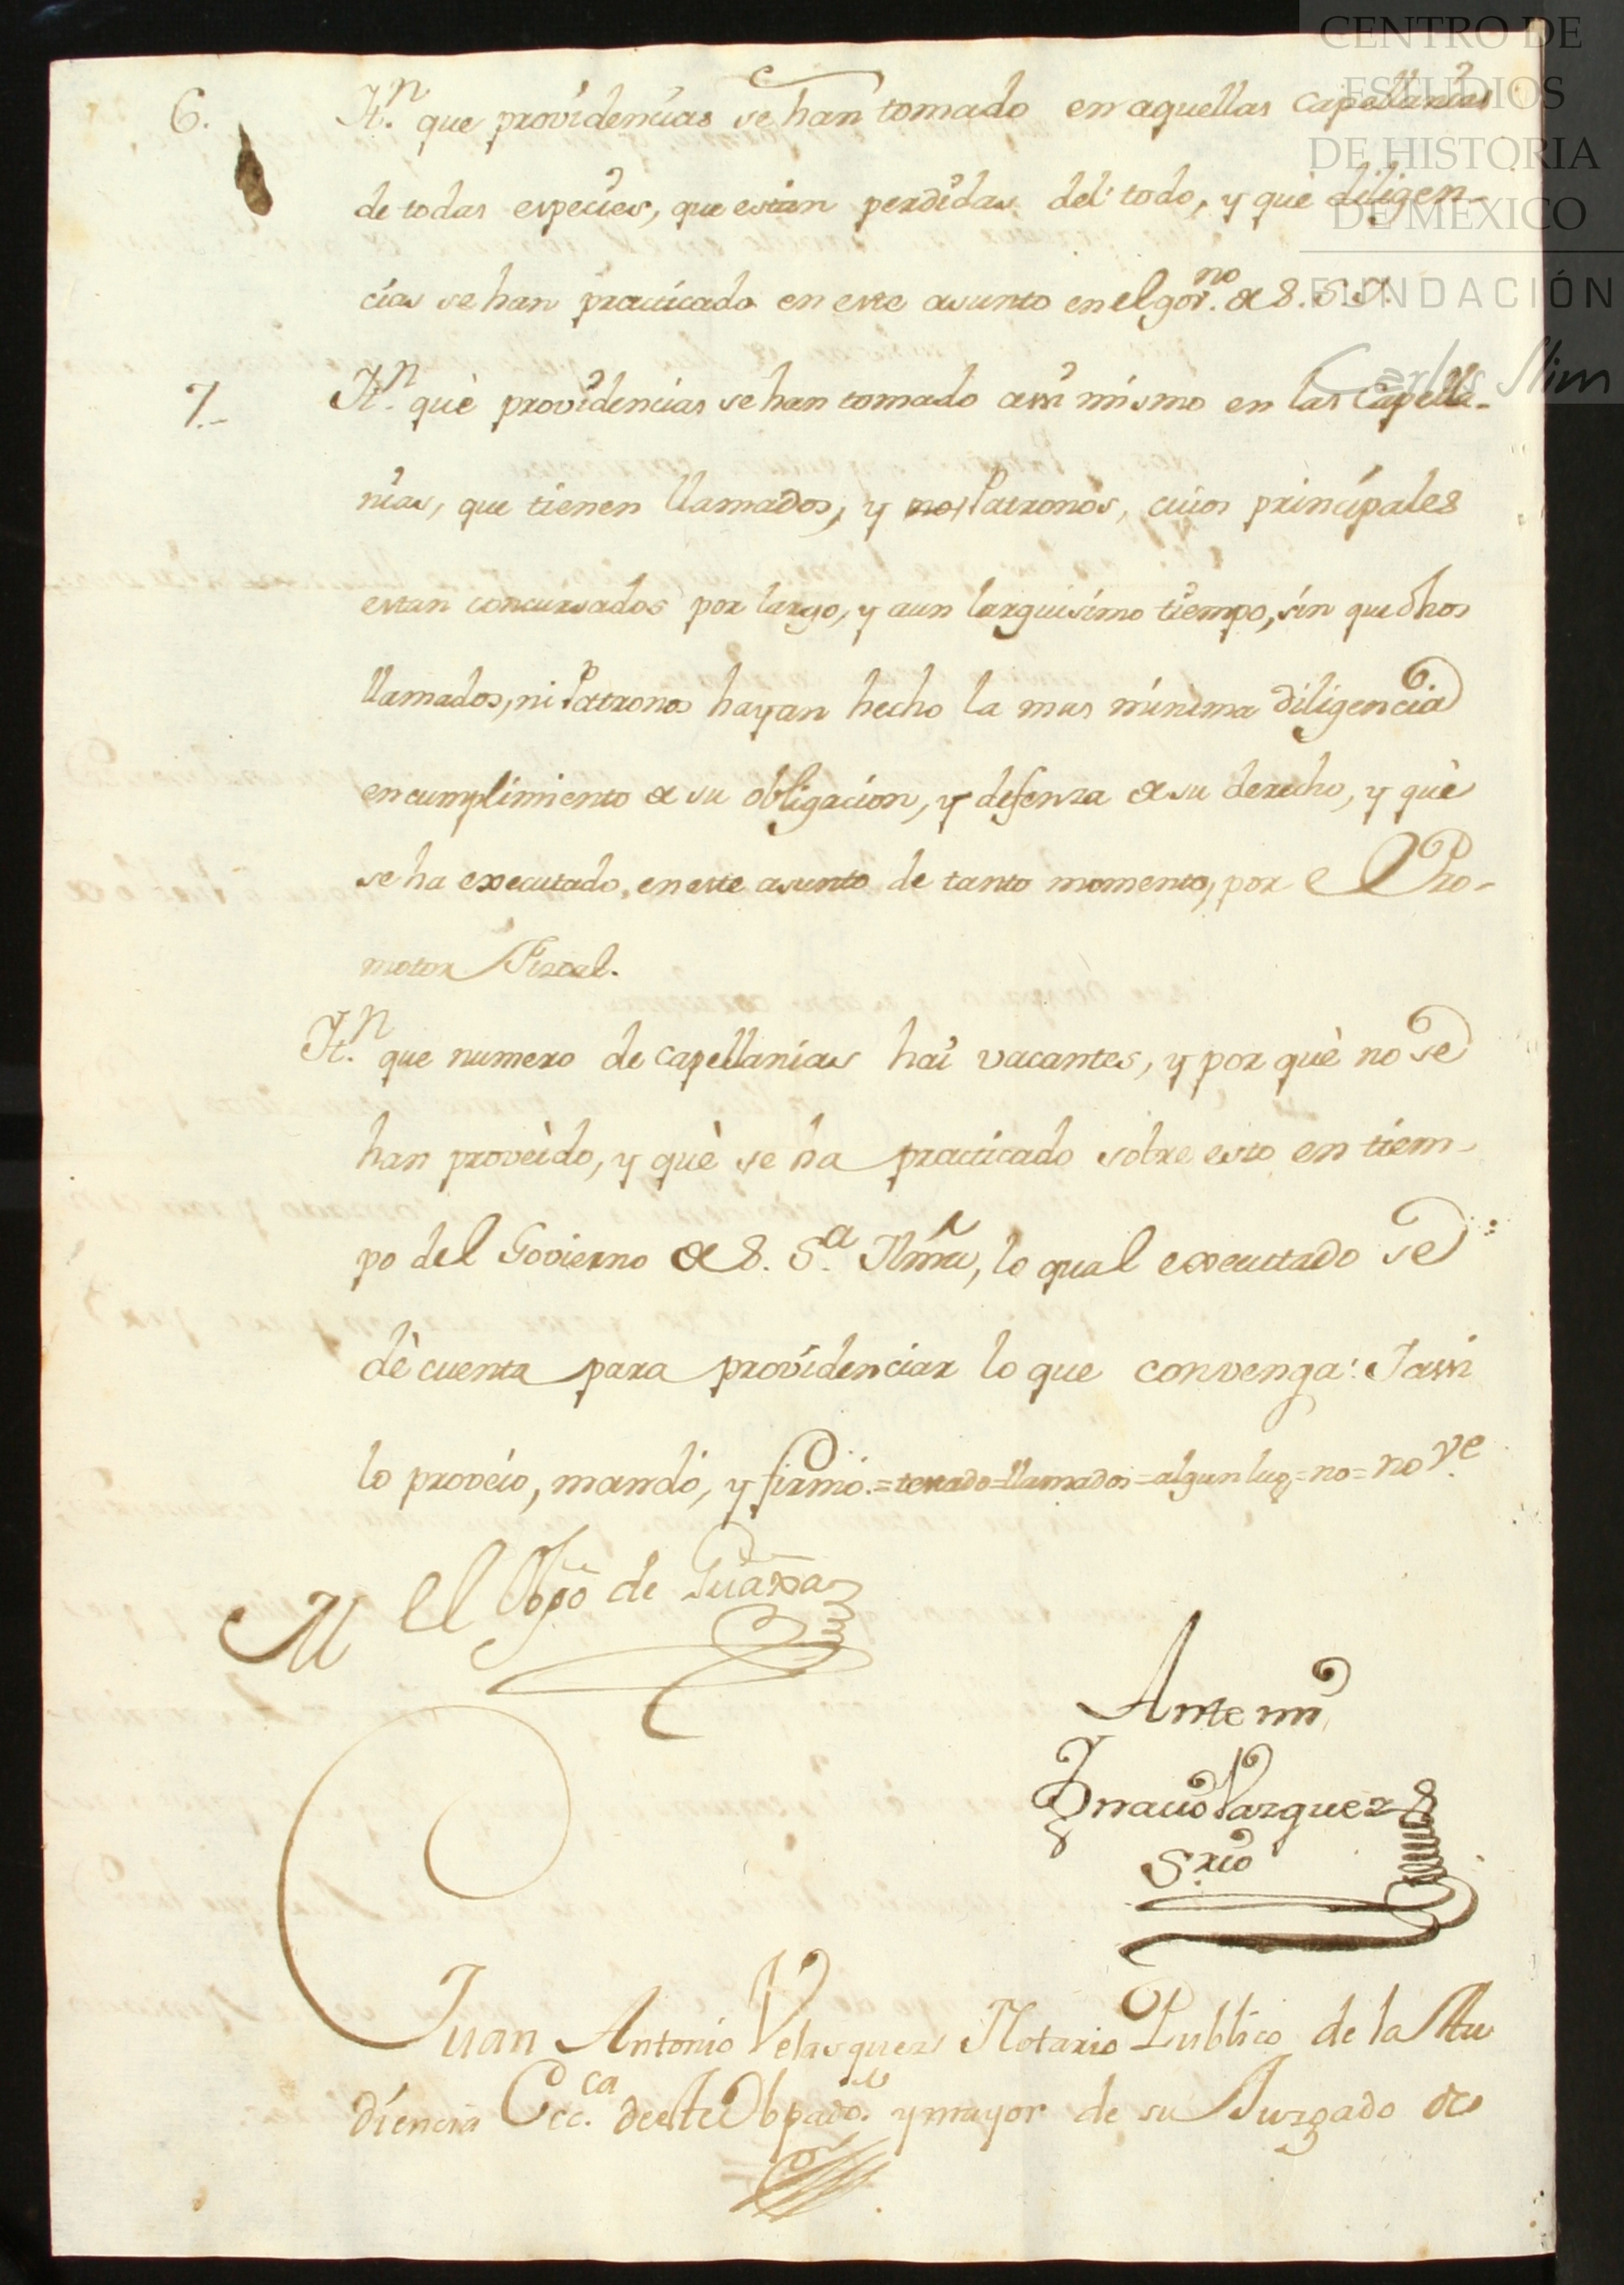 CENTRO DE
ESTUDIOS
DE HISTORIA
DE MÉXICO
FUNDACIÓN
Carlos Slim
6. Itn. que providencias se han tomado en aquellas capellanias
de todas especies, que están perdidas del todo, y què diligen-
cias se han practicado en este asunto en el gov.no de S. S. I.
7.- Itn. què providencias se han tomado assi mismo en las Capella-
nias, que tienen llamados, y no Patronos, cuios principales
estan concursados por largo, y aun larguisimo tiempo, sin que dhos
llamados, ni Patronos hayan hecho la mas minima diligencia
en cumplimiento de su obligacion, y defensa de su derecho, y què
se ha executado, en este asunto de tanto momento, por el Pro-
motor Fiscal.
Itn. que numero de capellanias hai vacantes, y por què no se
han proveìdo, y què se ha practicado sobre esto en tiem-
po del Govierno de S. S.a Ilma, lo qual executado se
dè cuenta para providenciar lo que convenga: I assi
lo proveìo, mandò, y firmò.=testado=llamados=algun lug=no=no ve.
M El Obpo de Guaxa
Ante mi
Ignacio Vazquez
Srio
Juan Antonio Velasquez Notario Publico de la Au
diencia Ecc.ca deste Obpado. y mayor de su Juzgado de